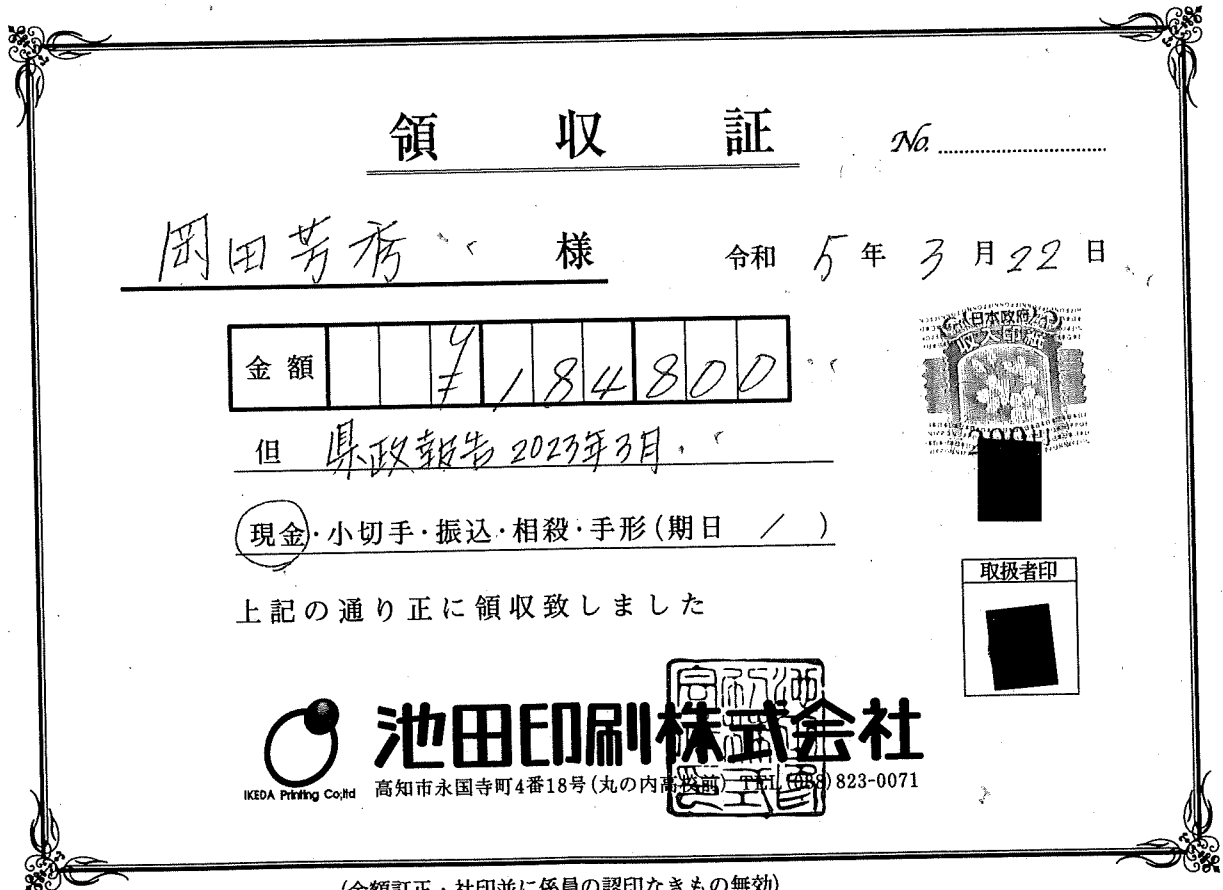 領収証
No.
岡田芳秀 様
令和 5年 3月 22日
日本政府
収入印紙
200円
金額 ¥184800
但 県政報告 2023年3月
現金・小切手・振込・相殺・手形(期日 / )
取扱者印
上記の通り正に領収致しました
池田印刷株式会社
IKEDA Printing Co;ltd
高知市永国寺町4番18号(丸の内高校前) TEL(088)823-0071
(金額訂正・社印並に係員の認印なきもの無効)